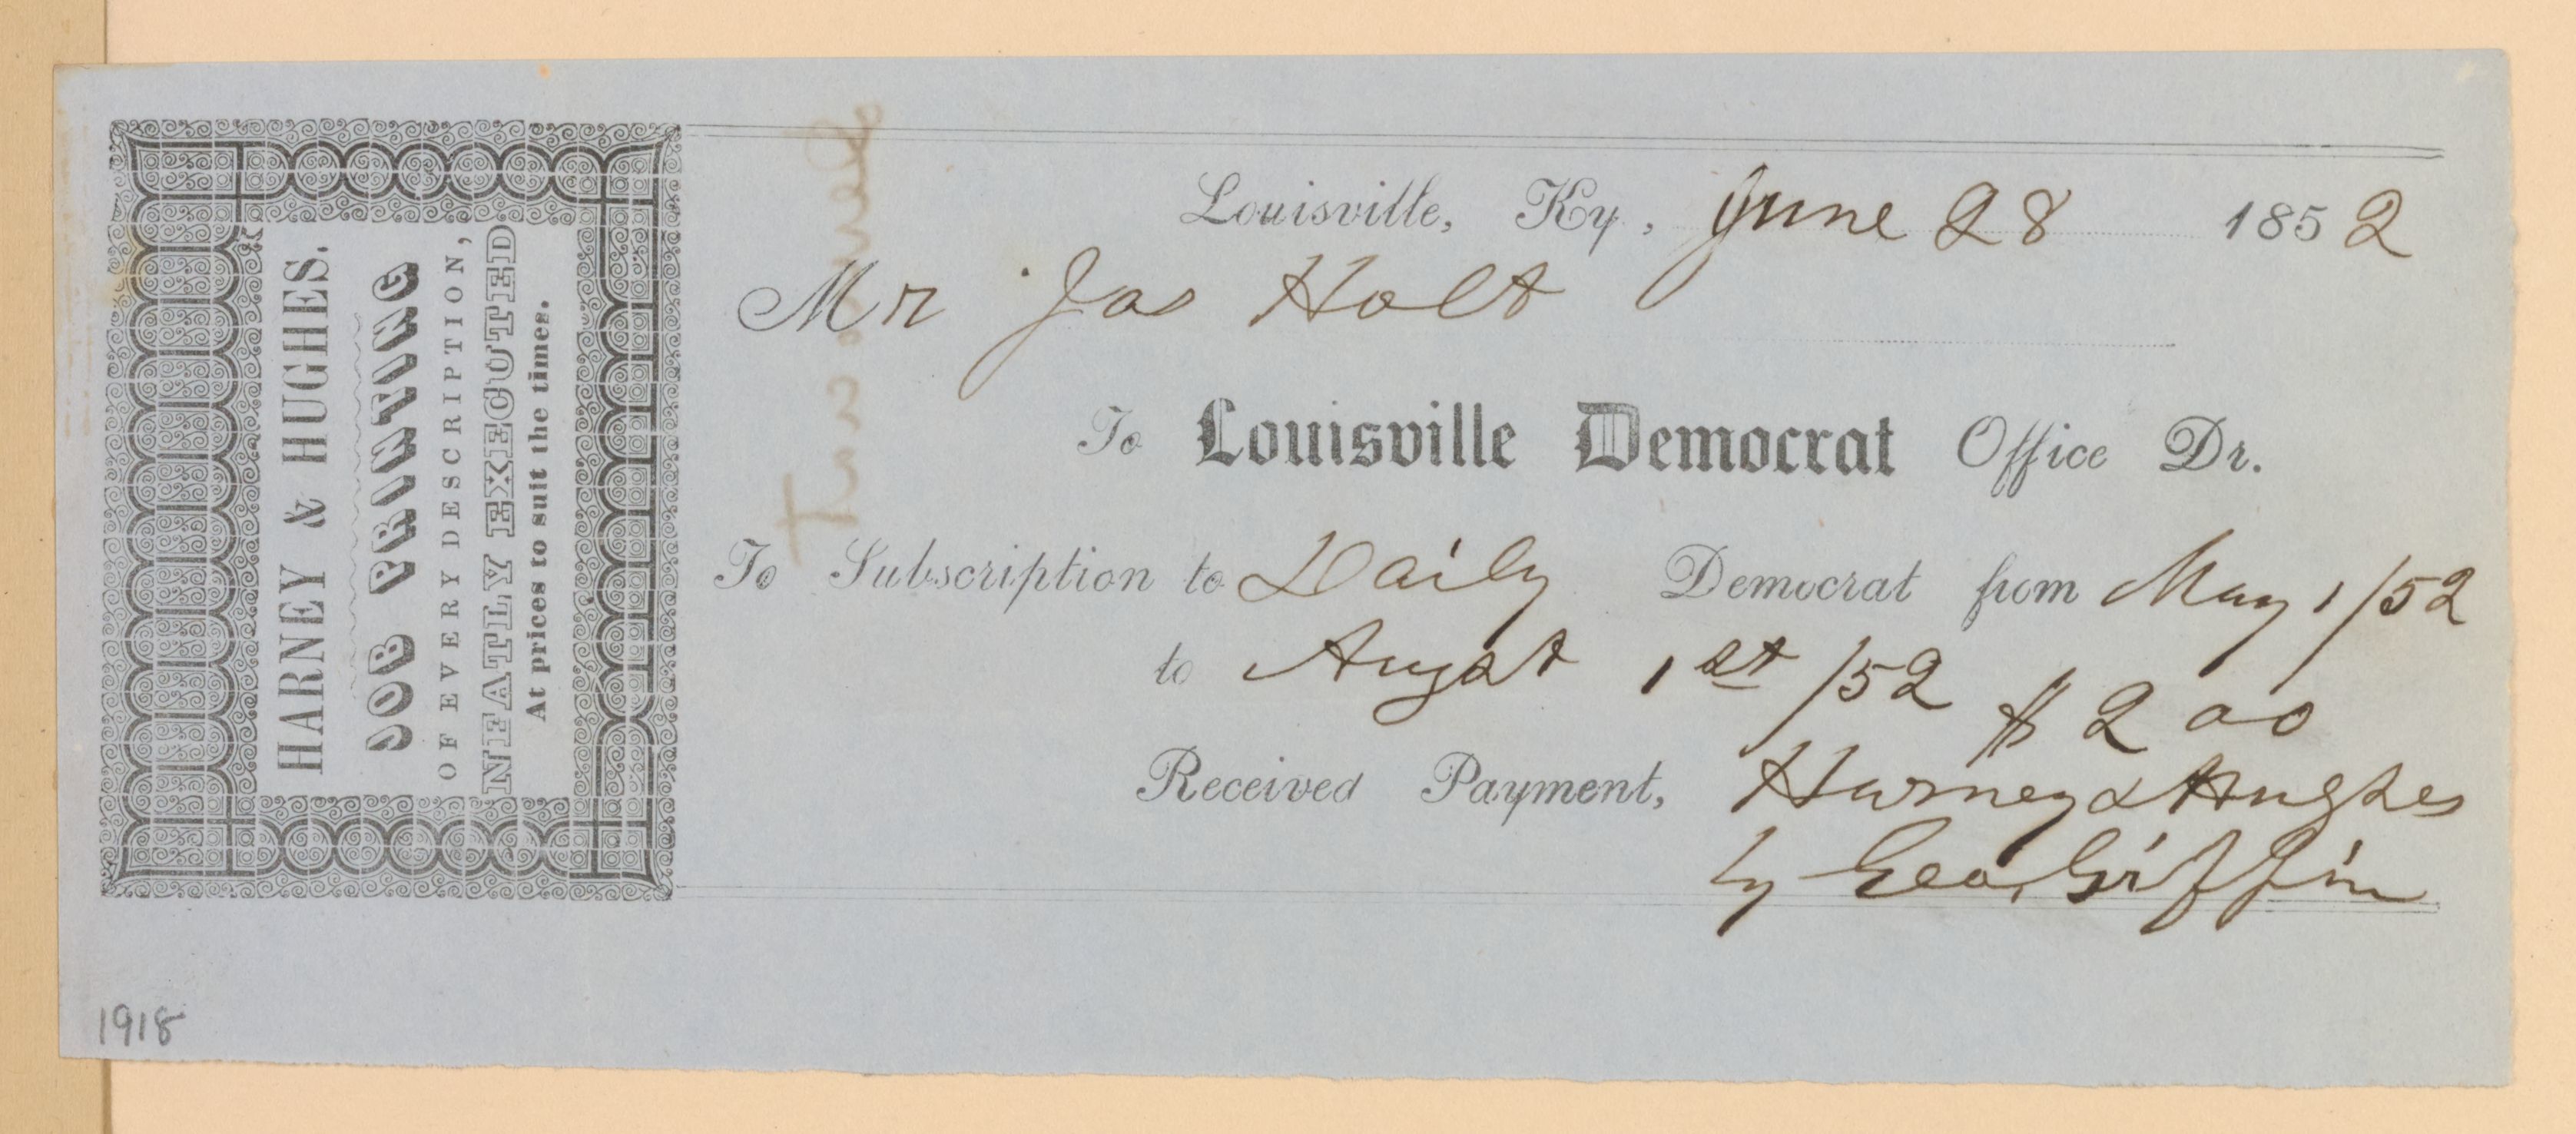 HARNEY & HUGHES.
JOB PRINTING
OF EVERY DESCRIPTION,
NEATLY EXECUTED
At prices to suit the times.
Louisville, Ky, June 28 1852
Mr Jas Holt
To Louisville Democrat Office Dr.
To Subscription to Daily Democrat from May 1/52
to Augst 1st/52 $2 00
Received Payment, Harney & Hughes
by Geo. Griffin
1918